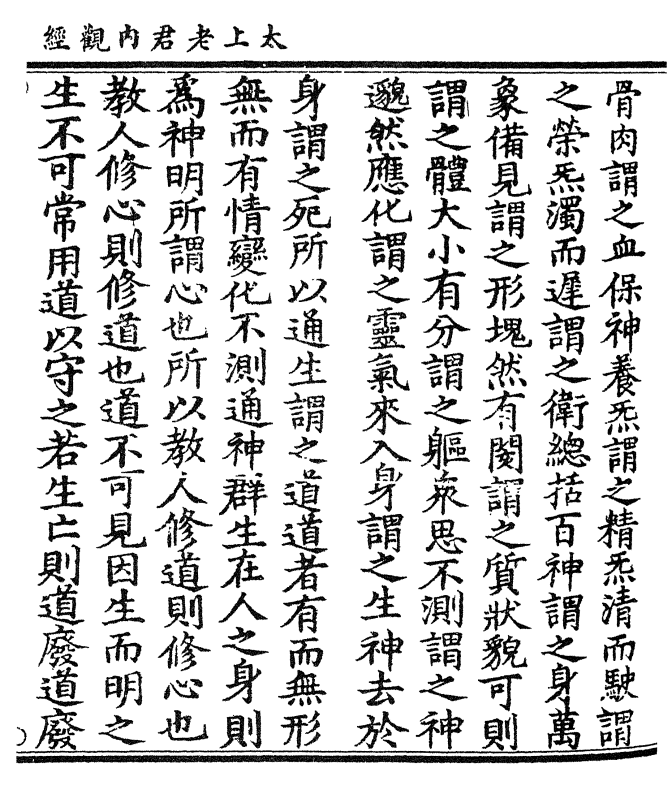 太上老君内觀經
骨肉謂之血保神養炁謂之精炁清而駛謂
之榮炁濁而遲謂之衛總括百神謂之身萬
象備見謂之形塊然有閡謂之質狀貌可則
謂之體大小有分謂之軀衆思不測謂之神
邈然應化謂之靈氣來入身謂之生神去於
身謂之死所以通生謂之道道者有而無形
無而有情變化不測通神群生在人之身則
爲神明所謂心也所以教人修道則修心也
教人修心則修道也道不可見因生而明之
生不可常用道以守之若生亡則道廢道廢